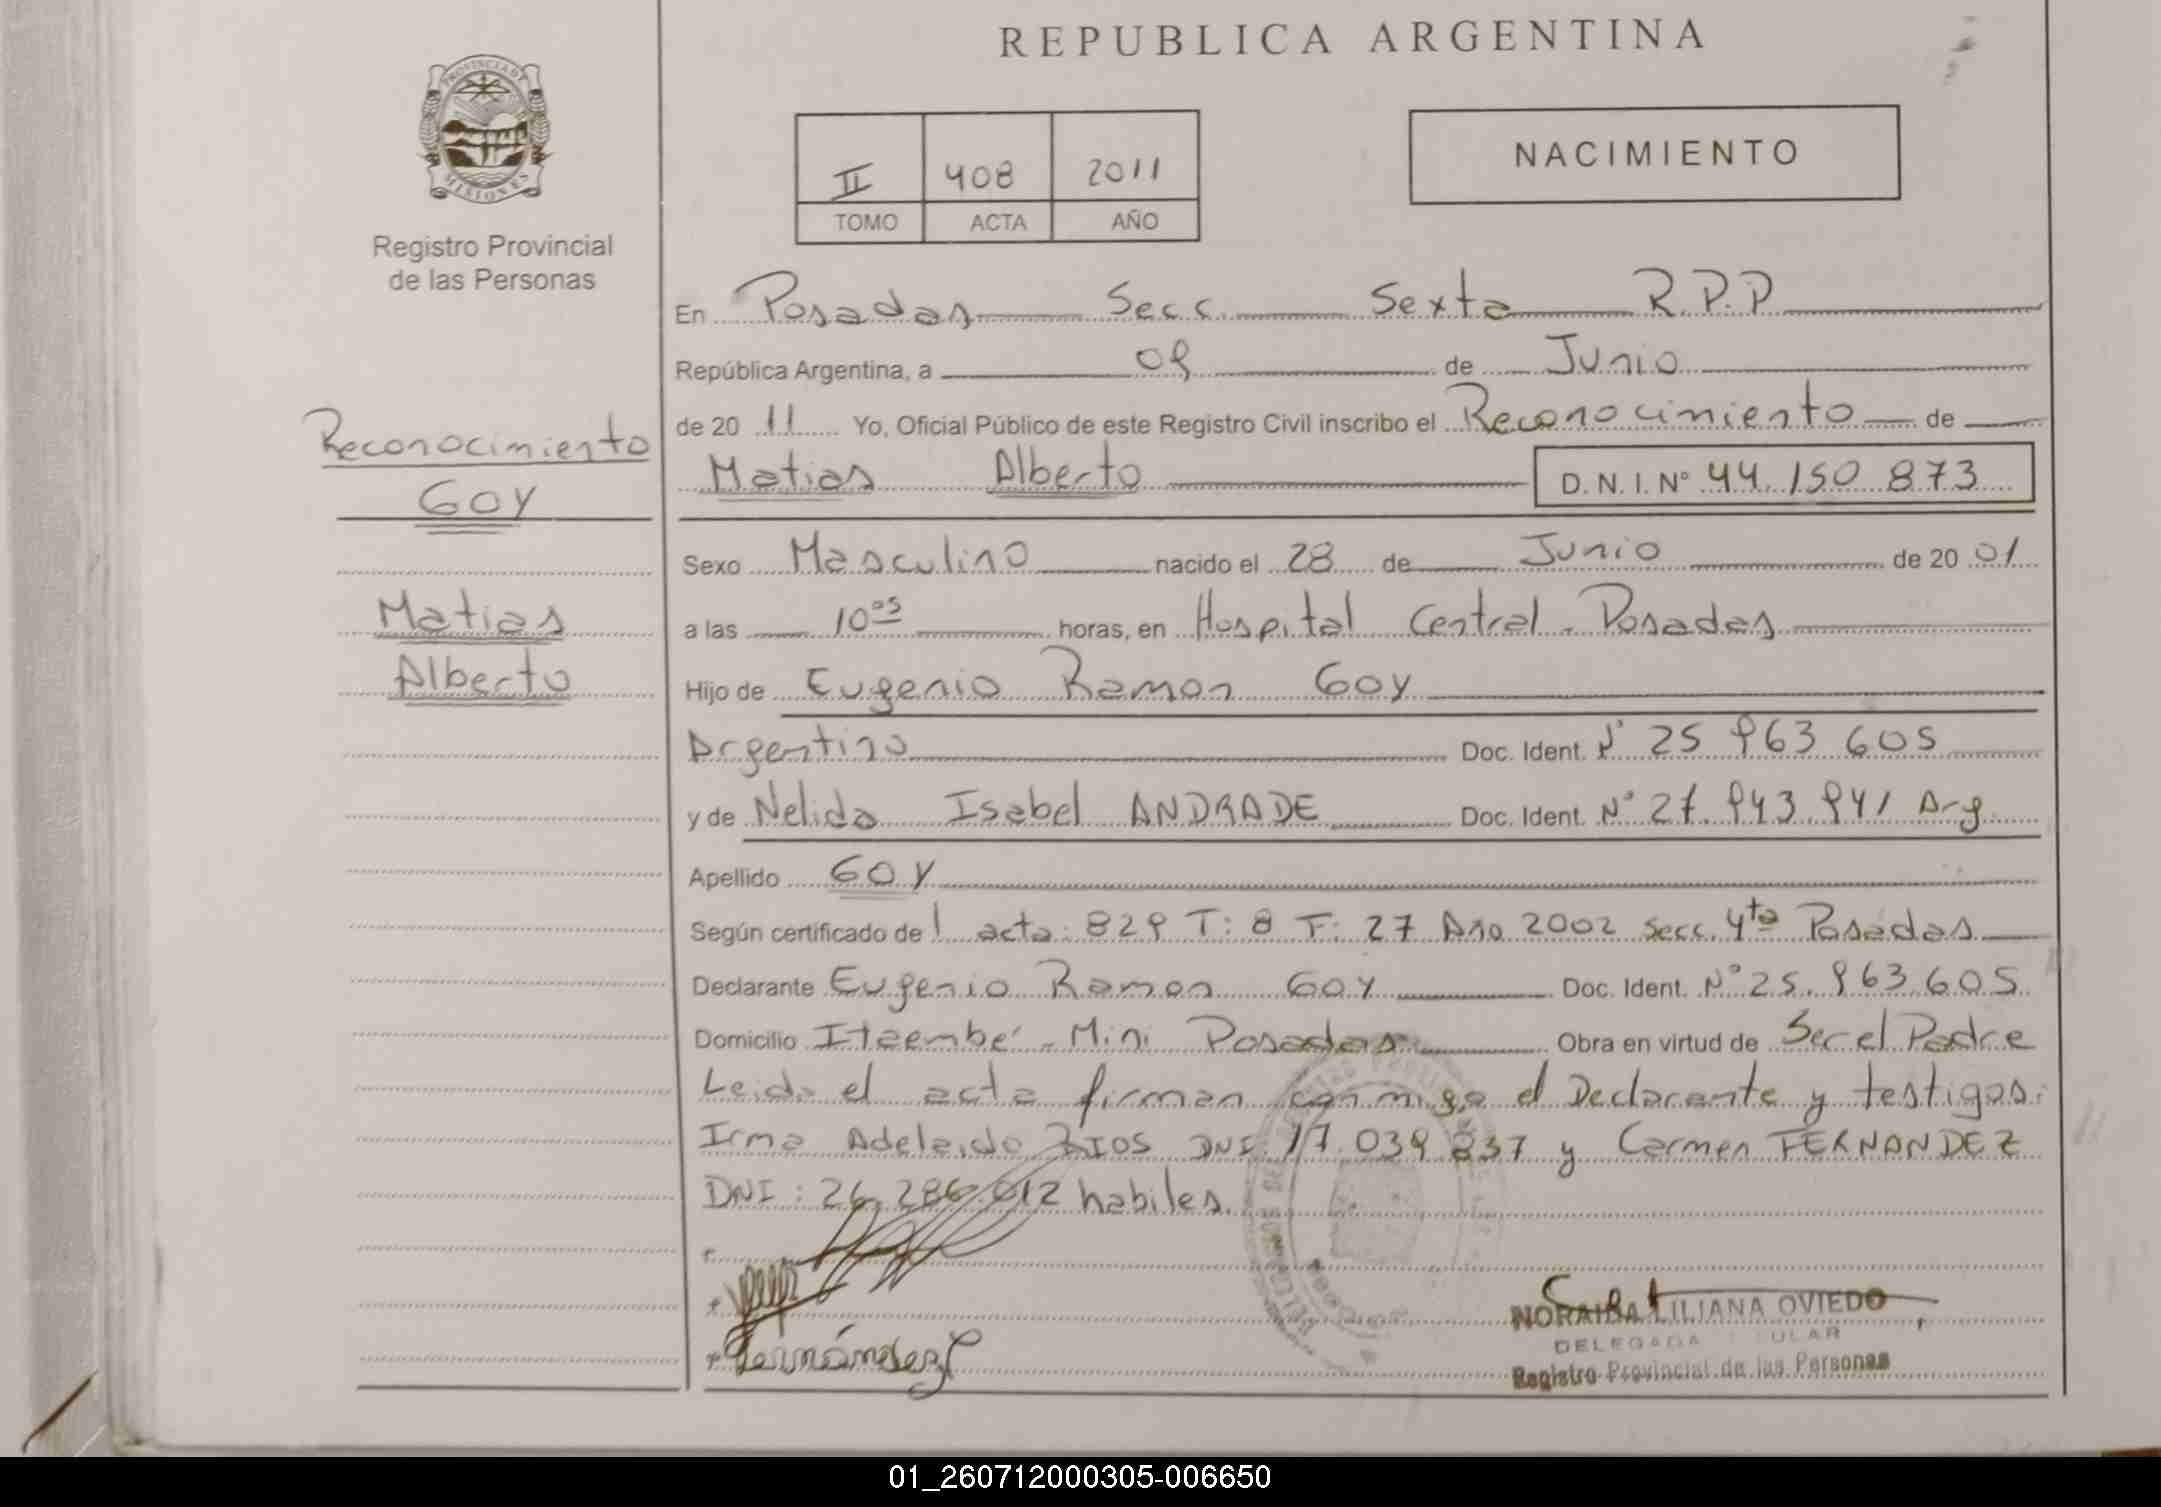 REPUBLICA ARGENTINA
PROVINCIA DE
MISIONES
Registro Provincial
de las Personas
II 408 2011
TOMO ACTA AÑO
NACIMIENTO
En Posadas Secc. Sexta R.P.P
República Argentina, a 09 de Junio
de 20 11 Yo, Oficial Público de este Registro Civil inscribo el Reconocimiento de
Matias Alberto D.N.I. Nº 44.150.873
Reconocimiento
GOY
Matias
Alberto
Sexo Masculino nacido el 28 de Junio de 20 01
a las 10 05 horas, en Hospital Central - Posadas
Hijo de Eugenio Ramon Goy
Argentino Doc. Ident. Nº 25.963.605
y de Nelida Isabel ANDRADE Doc. Ident. Nº 27.943.941 Arg.
Apellido GOY
Según certificado de acta: 829 T: 8 F: 27 Año 2002 Secc. 4ta Posadas
Declarante Eugenio Ramon Goy Doc. Ident. Nº 25.963.605
Domicilio Itaembé - Mini Posadas Obra en virtud de Ser el Padre
Leida el acta firman conmigo el Declarante y testigos:
Irma Adelaida RIOS DNI. 17.039.837 y Carmen FERNANDEZ
DNI: 26.286.012 habiles.
Fernández
NORAIBA LILIANA OVIEDO
DELEGADA TITULAR
Registro Provincial de las Personas
01_260712000305-006650